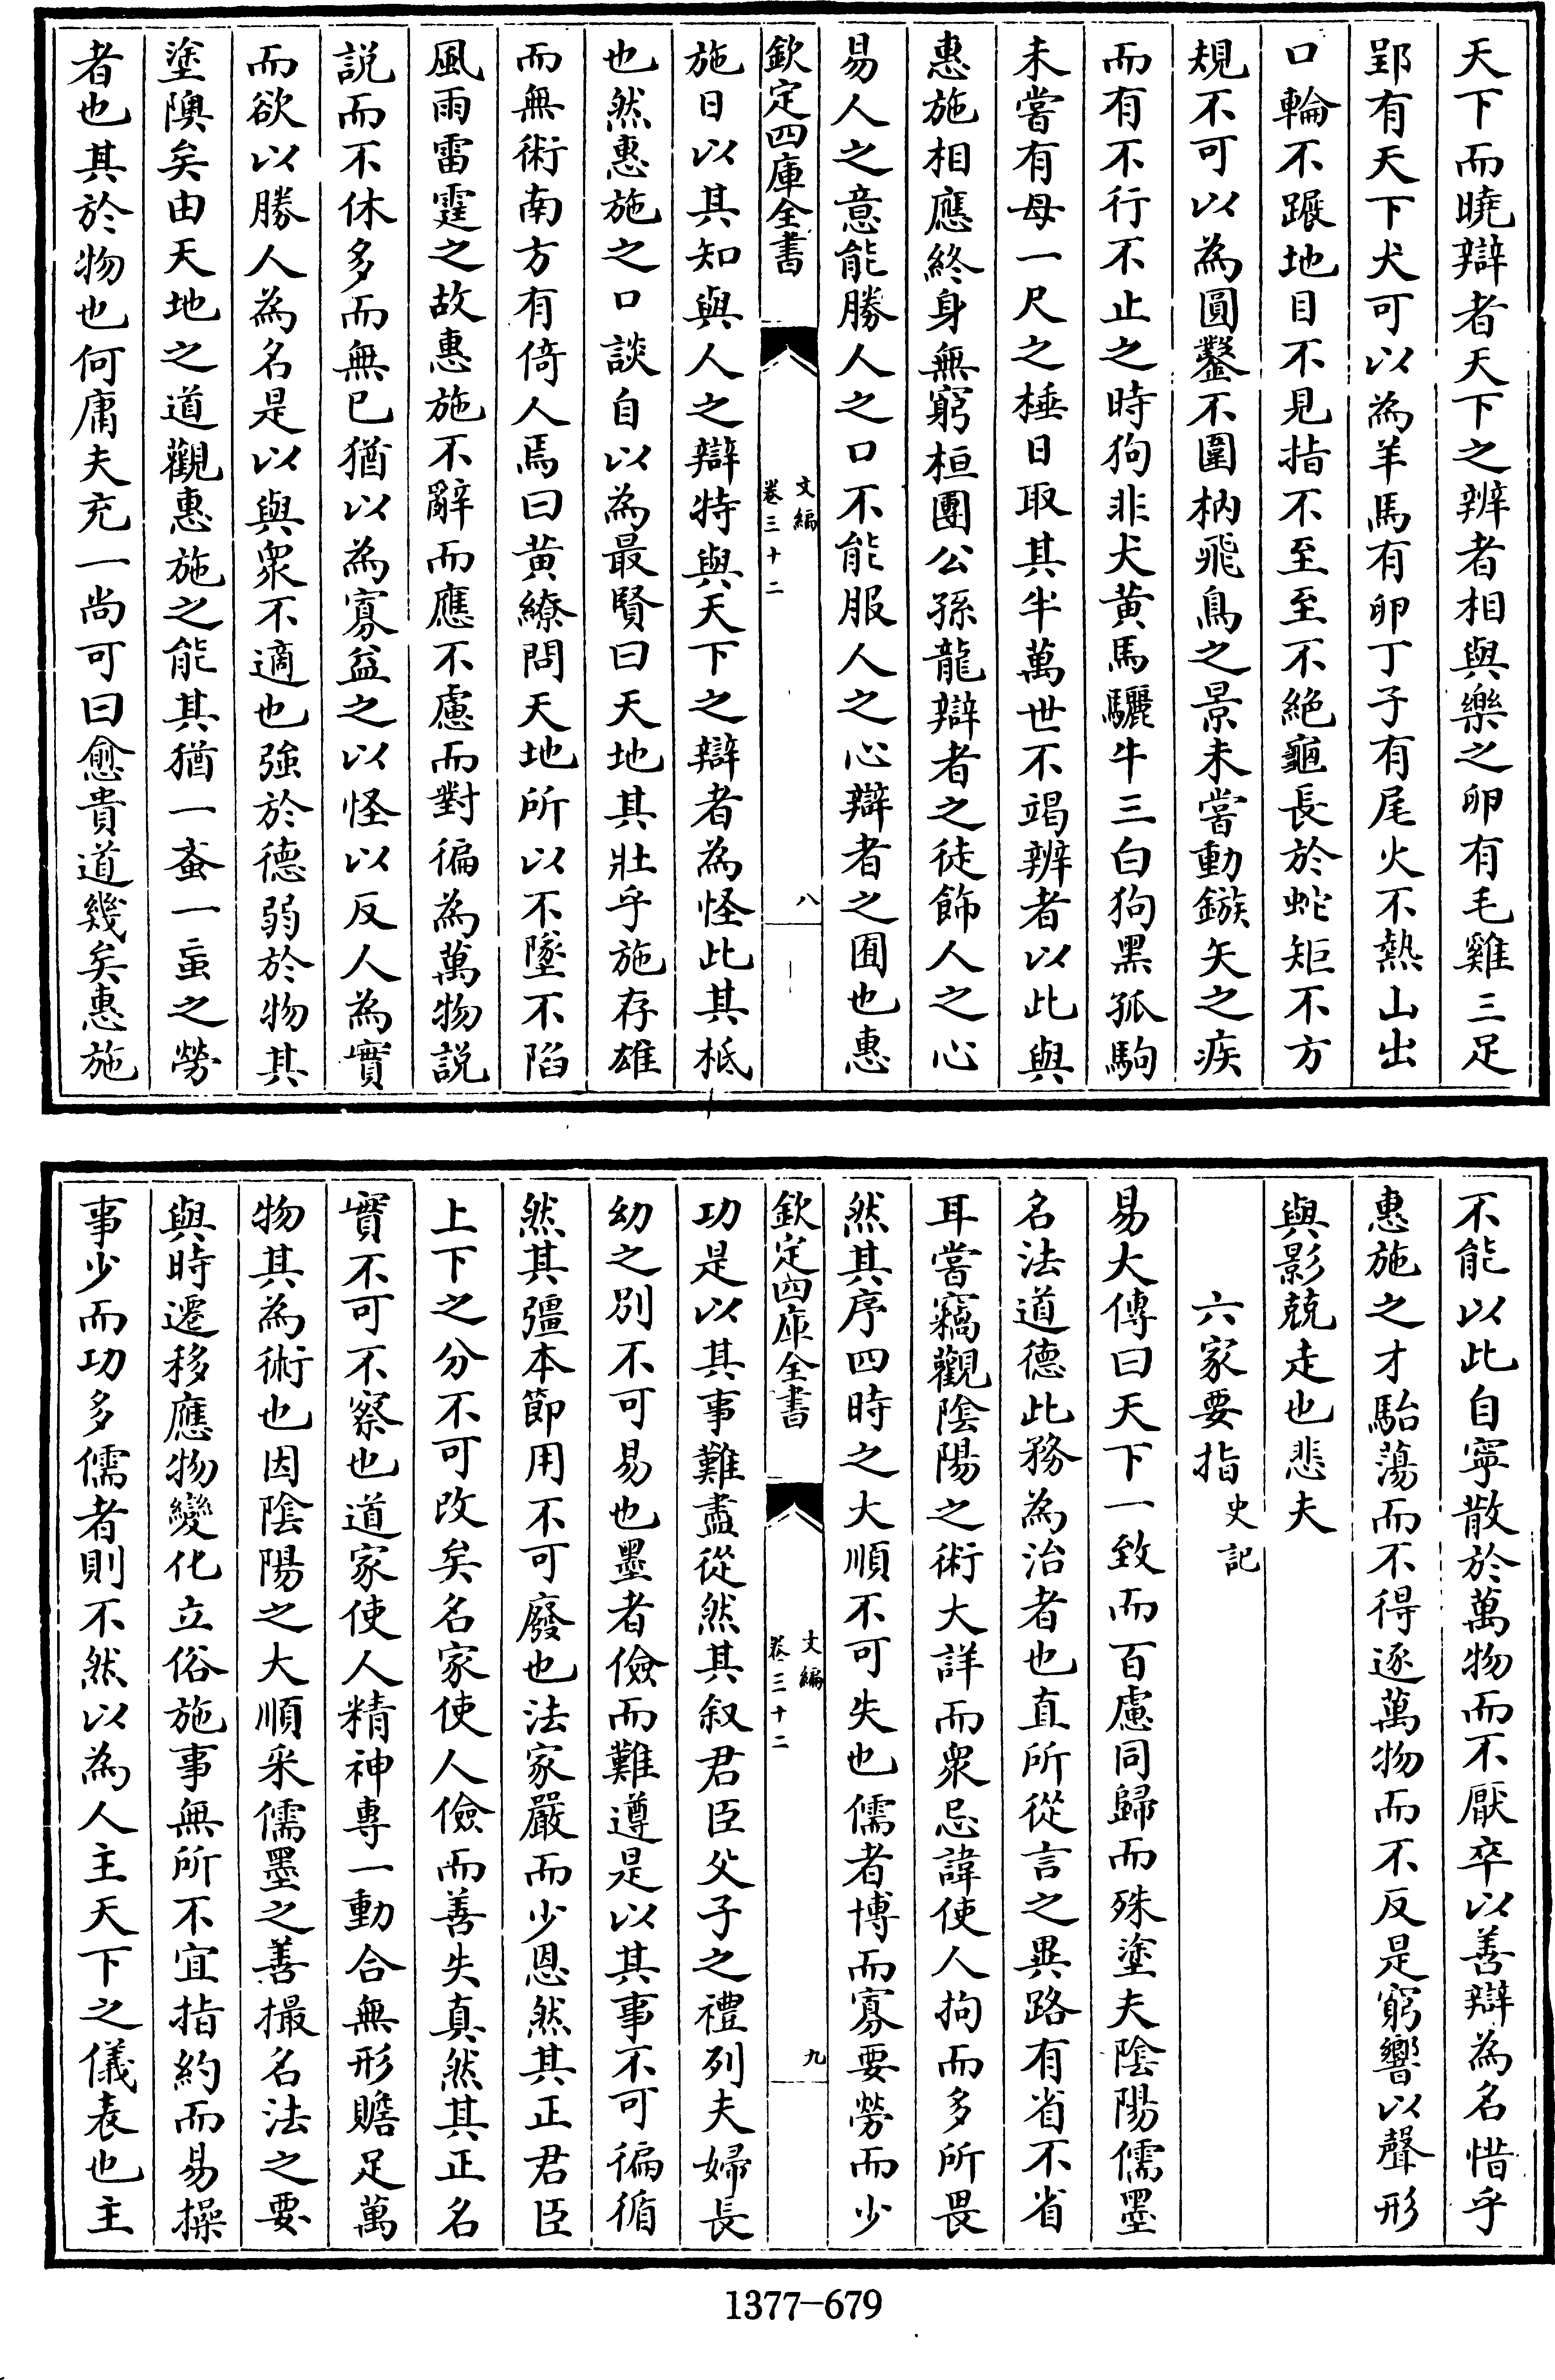 天下而曉辯者天下之辨者相與樂之卵有毛雞三足
郢有天下犬可以為羊馬有卵丁子有尾火不熱山出
口輪不蹍地目不見指不至至不絶龜長於蛇矩不方
規不可以為圓鑿不圍枘飛鳥之景未嘗動鏃矢之疾
而有不行不止之時狗非犬黄馬驪牛三白狗黑孤駒
未嘗有母一尺之棰日取其半萬世不竭辨者以此與
惠施相應終身無窮桓團公孫龍辯者之徒飾人之心
易人之意能勝人之口不能服人之心辯者之囿也惠
欽定四庫全書
文編
卷三十二
八
施日以其知與人之辯特與天下之辯者為怪此其柢
也然惠施之口談自以為最賢曰天地其壯乎施存雄
而無術南方有倚人焉曰黄繚問天地所以不墜不陷
風雨雷霆之故惠施不辭而應不慮而對徧為萬物説
説而不休多而無已猶以為寡益之以怪以反人為實
而欲以勝人為名是以與衆不適也強於德弱於物其
塗隩矣由天地之道觀惠施之能其猶一蚉一䖟之勞
者也其於物也何庸夫充一尚可曰愈貴道幾矣惠施
不能以此自寧散於萬物而不厭卒以善辯為名惜乎
惠施之才駘蕩而不得逐萬物而不反是窮響以聲形
與影兢走也悲夫
六家要指史記
易大傳曰天下一致而百慮同歸而殊塗夫陰陽儒墨
名法道德此務為治者也直所從言之異路有省不省
耳嘗竊觀陰陽之術大詳而衆忌諱使人拘而多所畏
然其序四時之大順不可失也儒者博而寡要勞而少
欽定四庫全書
文編
卷三十二
九
功是以其事難盡從然其叙君臣父子之禮列夫婦長
幼之别不可易也墨者儉而難遵是以其事不可徧循
然其彊本節用不可廢也法家嚴而少恩然其正君臣
上下之分不可改矣名家使人儉而善失真然其正名
實不可不察也道家使人精神專一動合無形贍足萬
物其為術也因陰陽之大順采儒墨之善撮名法之要
與時遷移應物變化立俗施事無所不宜指約而易操
事少而功多儒者則不然以為人主天下之儀表也主
1377-679